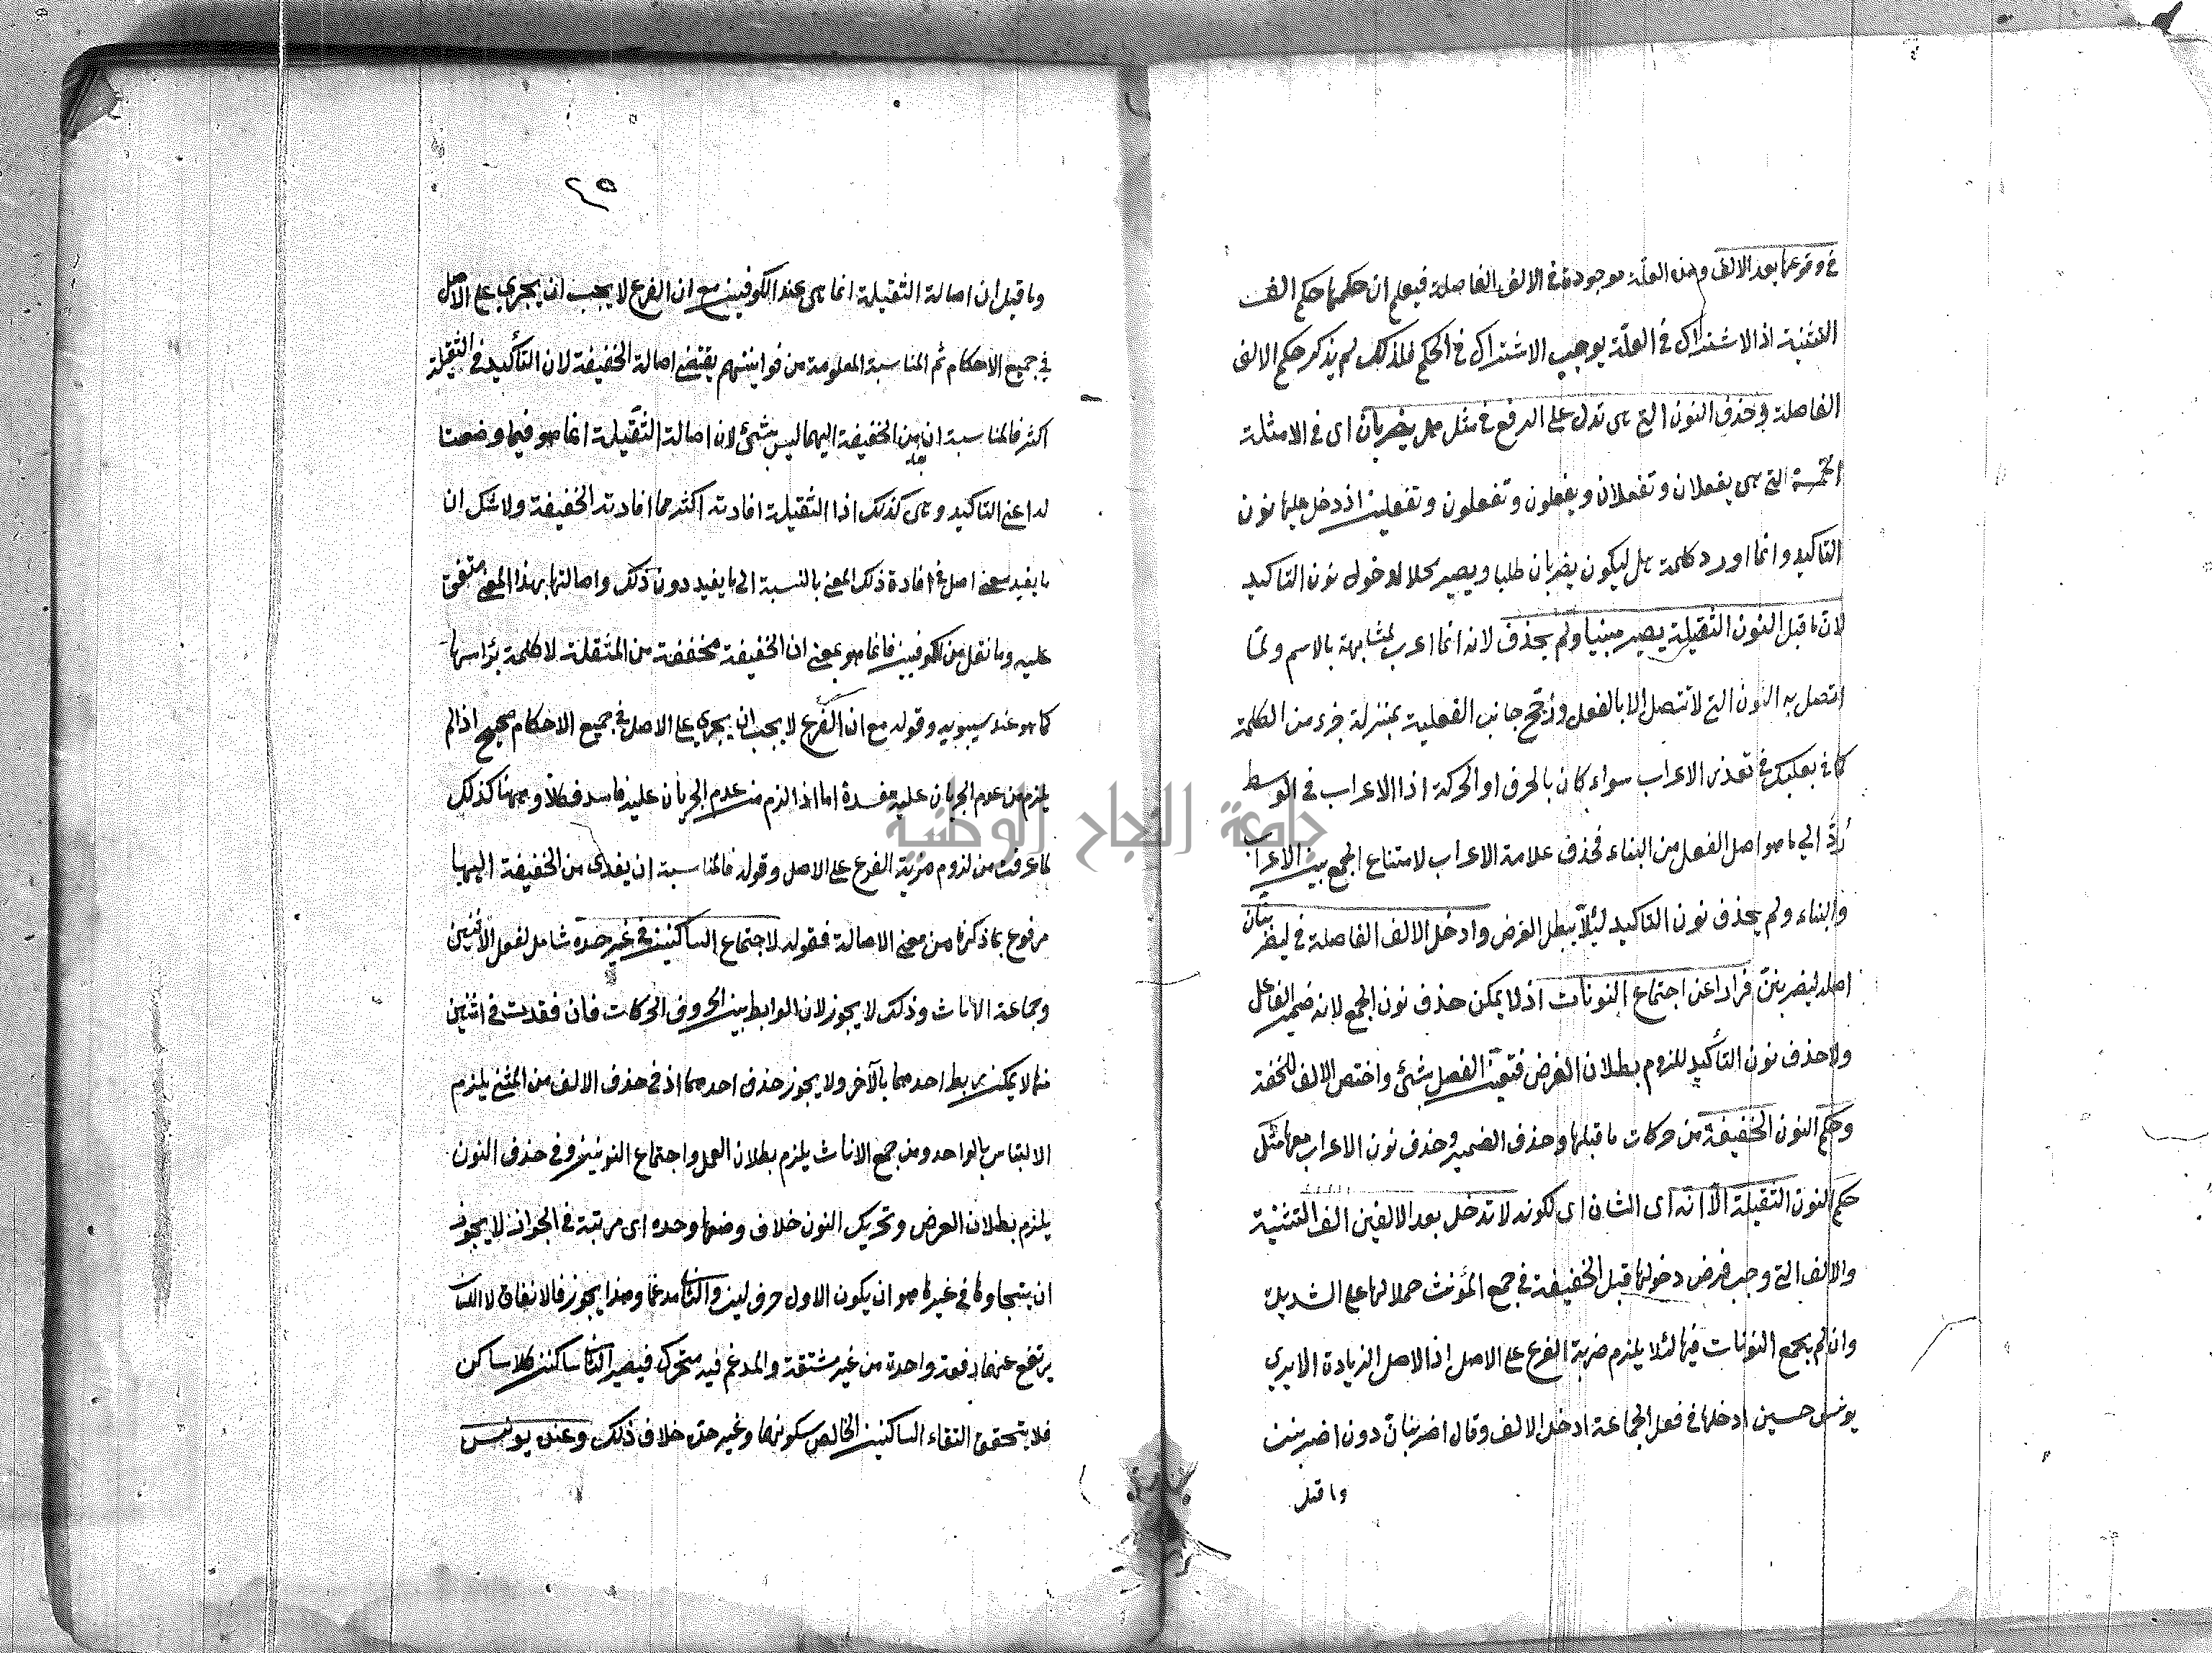 في وقوعها بعد الالف وهذه العلة موجودة في الالف الفاصلة فيعلم ان حكمها حكم الف
التثنية اذ الاشتراك في العلة يوجب الاشتراك في الحكم فلذلك لم يذكر حكم الالف
الفاصلة وحذف النون التي هي تدل على الرفع في مثل هل يضربان اى في الامثلة
الخمسة التي هي يفعلان وتفعلان ويفعلون وتفعلون وتفعلين اذ دخل عليها نون
التاكيد وانما اورد كلمة هل ليكون يضربان طلبا ويصير محلا لدخول نون التاكيد
لان ما قبل النون الثقيلة يصير مبنيا ولم يحذف لانه انما اعرب لمشابهة بالاسم ولما
اتصل به النون التي لا تتصل الا بالفعل ورجح جانب الفعلية بمنزلة جزء من الكلمة
كما في بعلبك في تعذر الاعراب سواء كان بالحرف او الحركة اذا الاعراب في الوسط
رُدّ الي ما هو اصل الفعل من البناء فحذف علامة الاعراب لامتناع الجمع بين الاعراب
والبناء ولم يحذف نون التاكيد ليلا يبطل الغرض وادخل الالف الفاصلة في ليضربنان
اصله ليضربننّ فرارا عن اجتماع النونات اذ لا يمكن حذف نون الجمع لانه ضمير الفاعل
ولا حذف نون التأكيد للزوم بطلان الغرض فتعين الفصل بشئ واختص الالف للخفة
وحكم النون الخفيفة من حركات ما قبلها وحذف الضمير وحذف نون الاعراب معها مثل
حكم النون الثقيلة الا انه اى الشان اى لكونه لا تدخل بعد الالفين الف التثنية
والالف التي وجب فرض دخولها قبل الخفيفة في جمع المؤنث حملا لها على الشديدة
وان لم يجمع النونات فيها لئلا يلزم مزية الفرع على الاصل اذ الاصل الزيادة الا يرى
يونس حسين ادخلها في فعل الجماعة ادخل الالف وقال اضربنان دون اضربنن
وما قيل
٢٥
وما قيل ان اصالة الثقيلة انما هي عند الكوفيين مع ان الفرع لا يجب ان يجري على الاصل
في جميع الاحكام ثم المناسبة المعلومة من قوانينهم يقتضي اصالة الخفيفة لان التأكيد في الثقيلة
اكثر فالمناسبة ان يعدى من الخفيفة اليها ليس بشئ لان اصالة الثقيلة انما هو فيما وضعتا
له اعني التاكيد وهي كذلك اذا الثقيلة افادته اكثر مما افادته الخفيفة ولا شك ان
ما يفيد معني اصل في افادة ذلك المعني بالنسبة الى ما يفيد دون ذلك واصالتها بهذا المعني متفق
عليه وما نقل من الكوفيين فانما هو بمعني ان الخفيفة مخففة من المثقلة لا كلمة برأسها
كما هو عند سيبويه وقوله مع ان الفرع لا يجب ان يجري على الاصل في جميع الاحكام صحيح اذا لم
يلزم من عدم الجريان عليه مفسدة اما اذا لزم من عدم الجريان عليه فاسد فلا وههنا كذلك
لما عرفت من لزوم مزية الفرع على الاصل وقوله فالمناسبة ان يعدى من الخفيفة اليها
مرفوع بما ذكرنا من معني الاصالة فقوله لاجتماع الساكنين في غير حده شامل لفعل الاثنين
وجماعة الاناث وذلك لا يجوز لان الرابط بين الحروف الحركات فان فقدت في اثنين
منها لا يمكن ربط احدهما بالآخر ولا يجوز حذف احدهما اذ في حذف الالف من المثني يلزم
الالتباس بالواحد ومن جمع الاناث يلزم بطلان العمل واجتماع النونين وفي حذف النون
يلزم بطلان الغرض وتحريك النون خلاف وضعها وحده اى مرتبة في الجواز لا يجوز
ان يتجاوزها في غيرها هو ان يكون الاول حرف لين والثاني مدغما وهذا يجوز فالاتفاق لان اللسان
يرتفع عنهما دفعة واحدة من غير مشقة والمدغم فيه متحرك فيصير الثاني ساكنين كلا ساكن
فلا يتحقق التقاء الساكنين الخالص سكونهما وغير حده خلاف ذلك وعند يونس